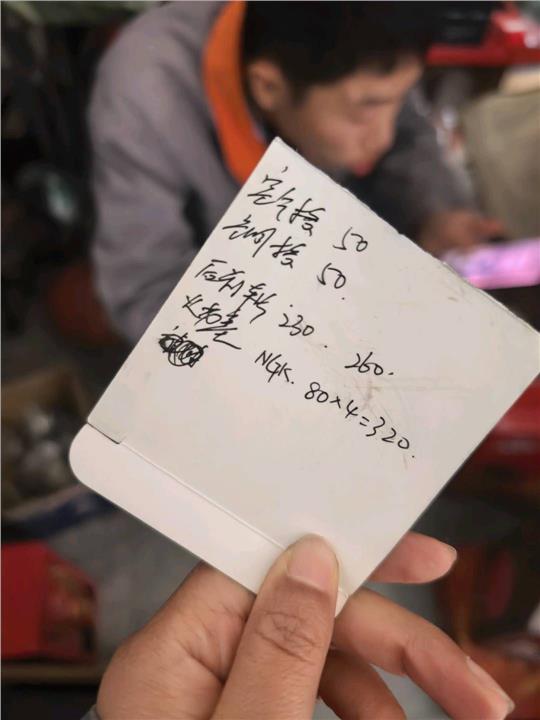 空气格 50
空调格 50.
后刹 230. 260.
火花塞 NGK. 80×4=320.